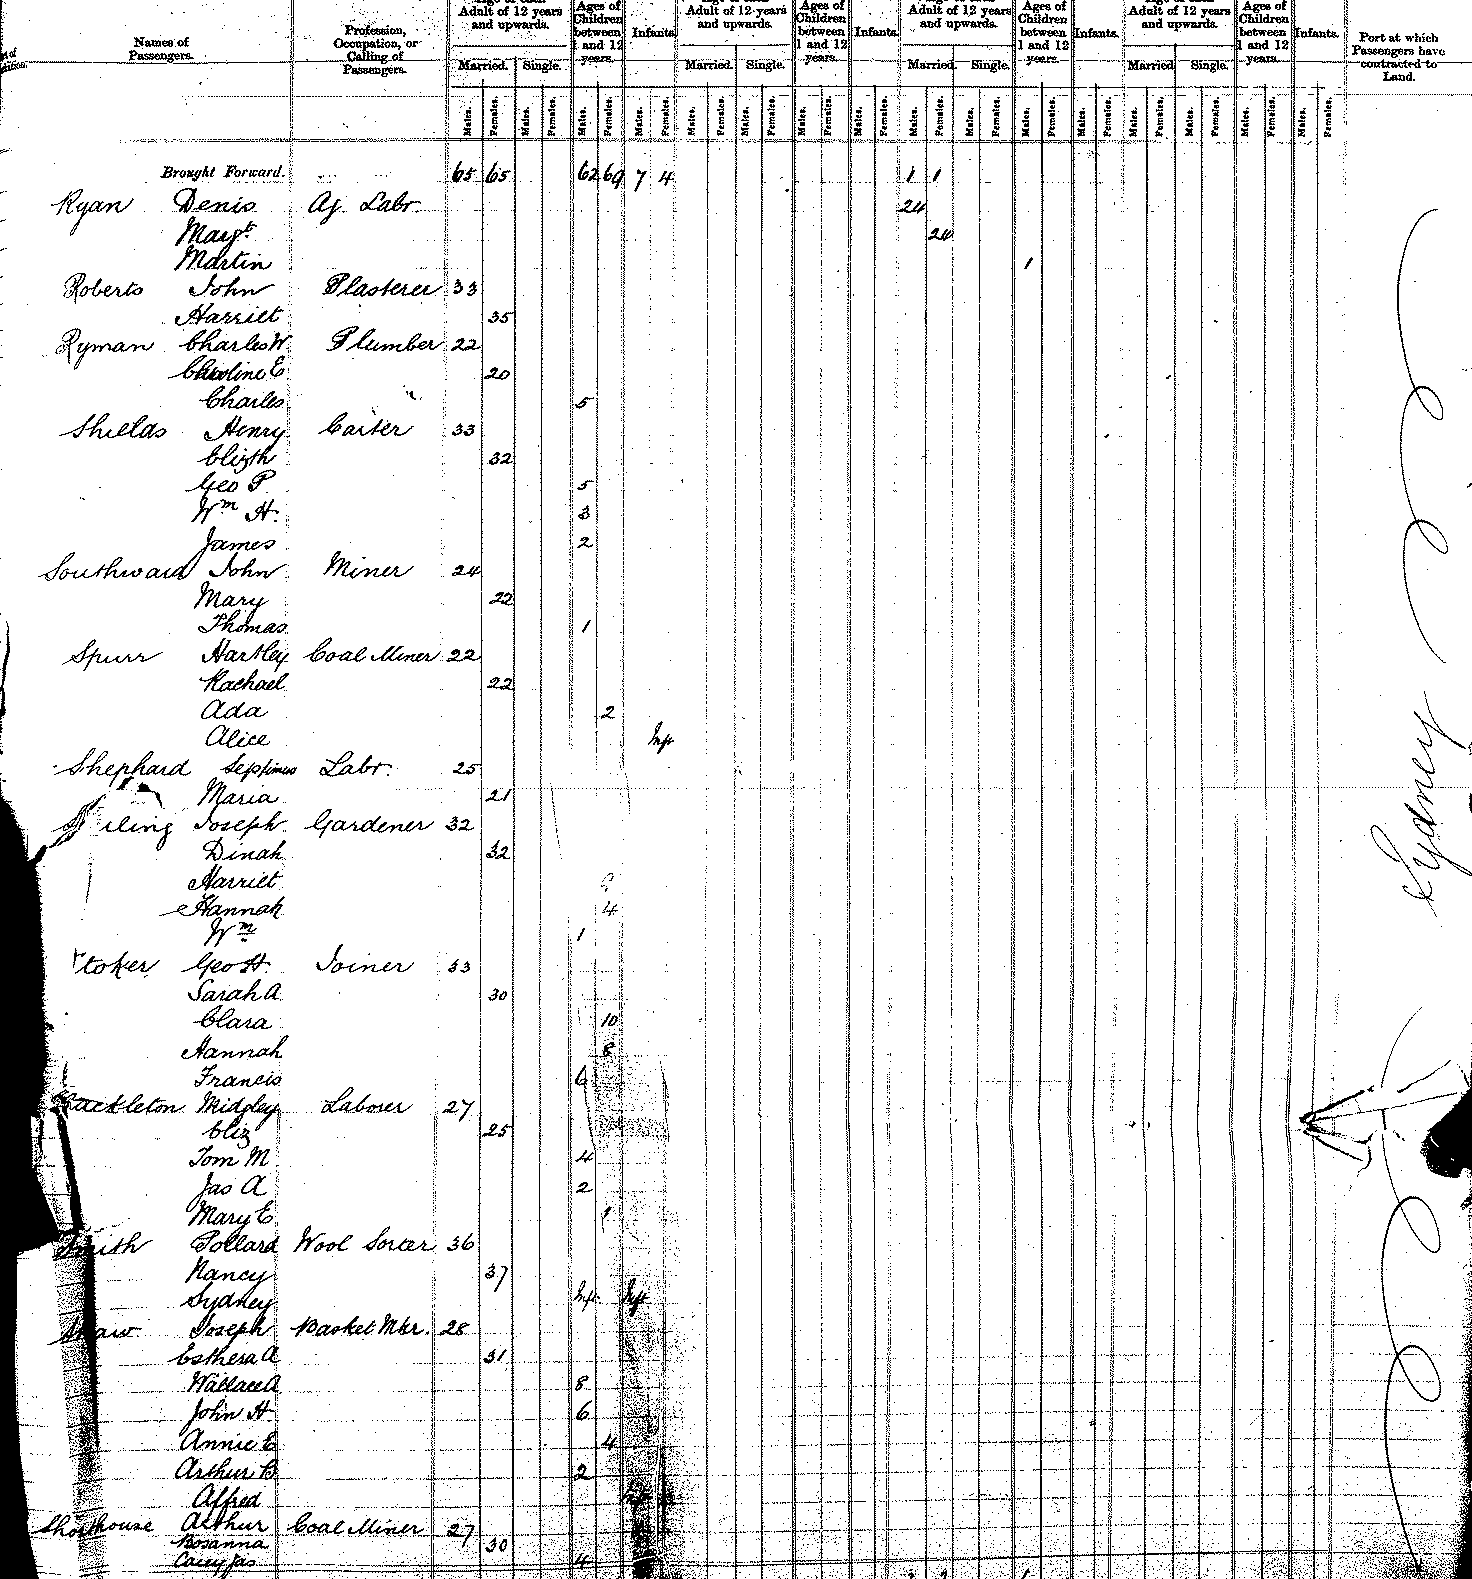 Names of Passengers.
Profession, Occupation, or Calling of Passengers.
Adult of 12 years and upwards.
Ages of Children between 1 and 12 years.
Infants.
Adult of 12 years and upwards.
Ages of Children between 1 and 12 years.
Infants.
Adult of 12 years and upwards.
Ages of Children between 1 and 12 years.
Infants.
Adult of 12 years and upwards.
Ages of Children between 1 and 12 years.
Infants.
Port at which Passengers have contracted to Land.
Married. Single. Married. Single. Married. Single. Married. Single.
Males. Females. Males. Females. Males. Females. Males. Females. Males. Females. Males. Females. Males. Females. Males. Females. Males. Females. Males. Females. Males. Females. Males. Females. Males. Females. Males. Females. Males. Females. Males. Females.
Brought Forward. 65 65 62 69 7 4 1 1
Ryan Denis Ag Labr 24
Margt 24
Martin 1
Roberts John Plasterer 33
Harriet 35
Ryman Charles W Plumber 22
Caroline E 20
Charles 5
Shields Henry Carter 33
Elizth 32
Geo P 5
Wm H. 3
James 2
Southward John Miner 24
Mary 22
Thomas 1
Spurr Hartley Coal Miner 22
Rachael 22
Ada 2
Alice Inft
Shephard Septimus Labr. 25
Maria 21
iling Joseph Gardener 32
Dinah 32
Harriet
Hannah 4
Wm 1
toker Geo H. Joiner 33
Sarah A 30
Clara 10
Hannah 8
Francis 6
ackleton Midgley Laborer 27
Eliz 25
Tom M 4
Jas A 2
Mary E 1
Smith Pollard Wool Sorter 36
Nancy 37
Sydney Inft Inft
Shaw Joseph Basket Mkr. 28
Esthera A 31
Wallace A 8
John H 6
Annie E 4
Arthur B 2
Alfred
Shorthouse Arthur Coal Miner 27
Rosanna 30
Casey Jas 4
Sydney